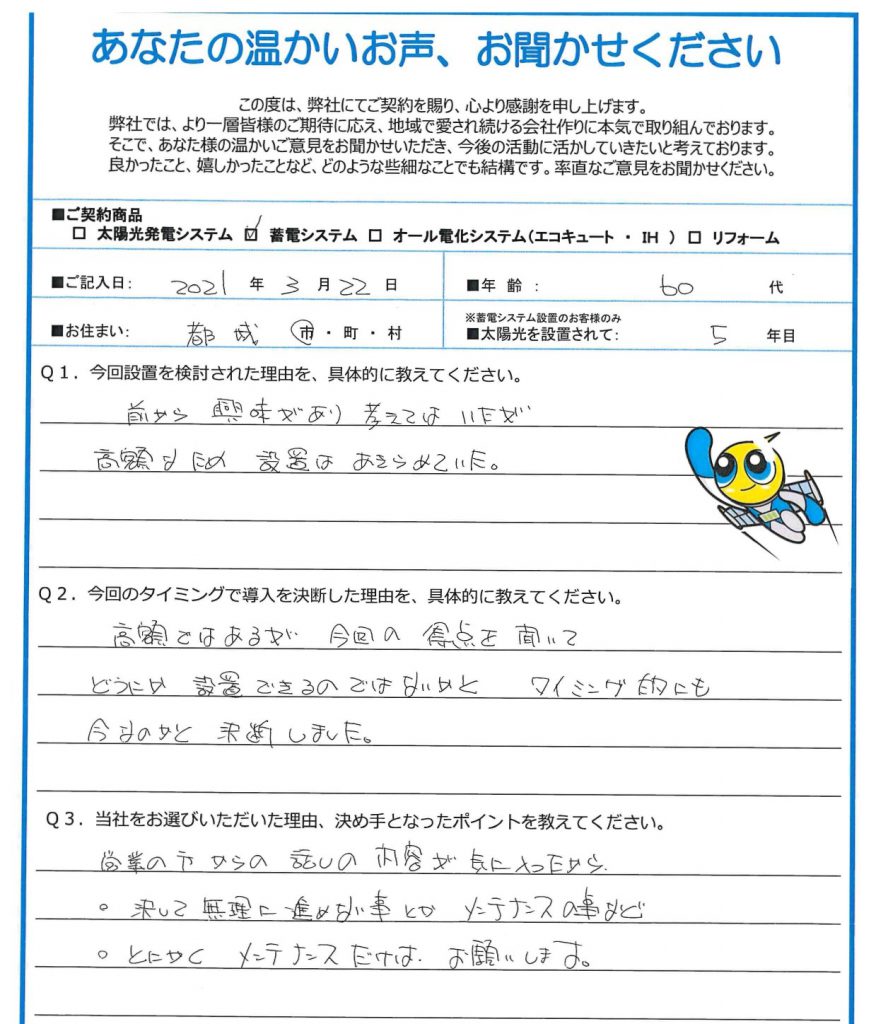 あなたの温かいお声、お聞かせください
この度は、弊社にてご契約を賜り、心より感謝を申し上げます。
弊社では、より一層皆様のご期待に応え、地域で愛され続ける会社作りに本気で取り組んでおります。
そこで、あなた様の温かいご意見をお聞かせいただき、今後の活動に活かしていきたいと考えております。
良かったこと、嬉しかったことなど、どのような些細なことでも結構です。率直なご意見をお聞かせください。
■ご契約商品
□ 太陽光発電システム ☑ 蓄電システム □ オール電化システム(エコキュート ・ IH ) □ リフォーム
■ご記入日: 2021 年 3 月 22 日 ■年 齢 : 60 代
※蓄電システム設置のお客様のみ
■お住まい: 都城 市・町・村 ■太陽光を設置されて: 5 年目
Q1. 今回設置を検討された理由を、具体的に教えてください。
前から 興味があり 考えては いたが
高額なため 設置は あきらめていた。
Q2. 今回のタイミングで導入を決断した理由を、具体的に教えてください。
高額ではあるが 今回の 得点を 聞いて
どうにか 設置できるのではないかと タイミング的にも
今なのかと 決断しました。
Q3. 当社をお選びいただいた理由、決め手となったポイントを教えてください。
営業の方からの 話しの 内容が 気に入ったから
○ 決して 無理に 進めない事とか メンテナンスの事など
○ とにかく メンテナンスだけは お願いします。